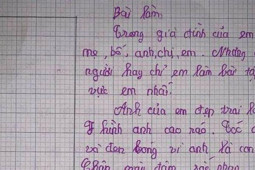 Bài làm
Trong gia đình của em
mẹ, bố, anh, chị, em. Nhưng
người hay chỉ em làm bài tậ
vực em nhất.
Anh của em đẹp trai l
hình anh cao ráo. Tóc
và đen bóng vì anh là con
Chân mày đậm